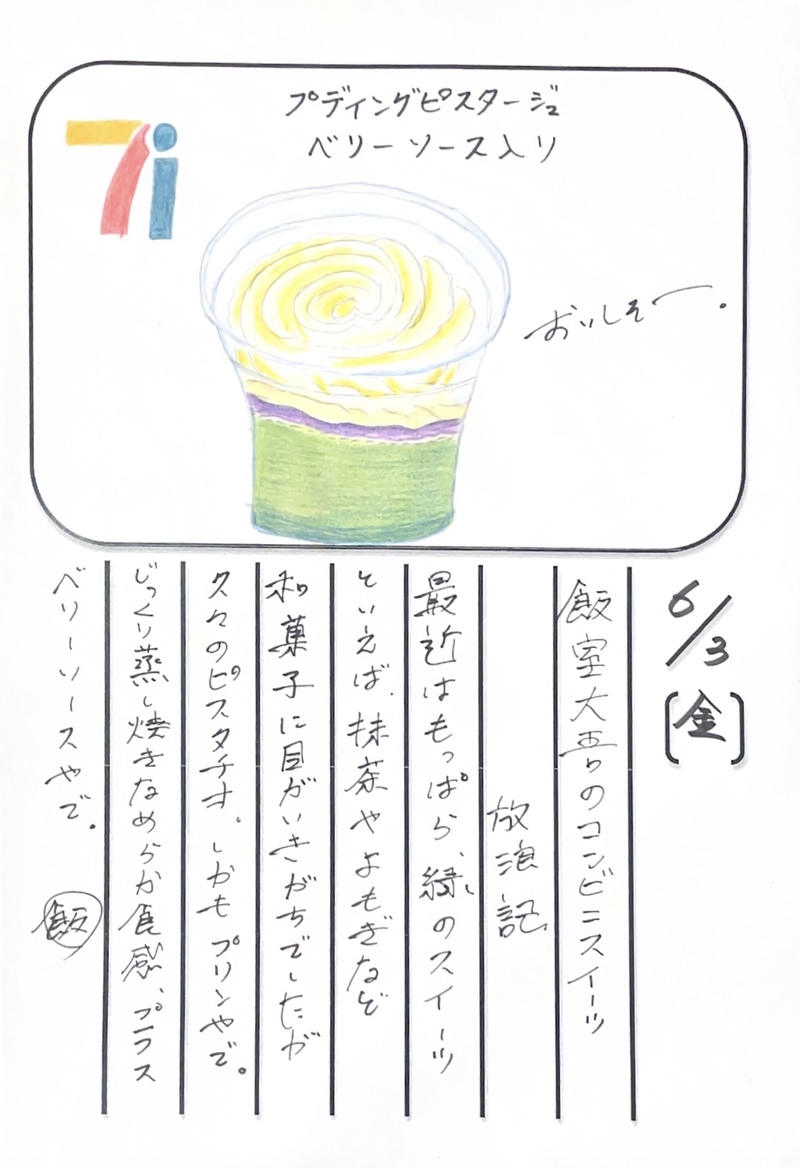 7i
プディングピスタージュ
ベリーソース入り
おいしそー。
6/3
[金]
飯室大吾のコンビニスイーツ
放浪記
最近はもっぱら、緑のスイーツ
といえば、抹茶やよもぎなど
和菓子に目がいきがちでしたが
久々のピスタチオ。しかもプリンやで。
じっくり蒸し焼きなめらか食感、プラス
ベリーソースやで。
飯